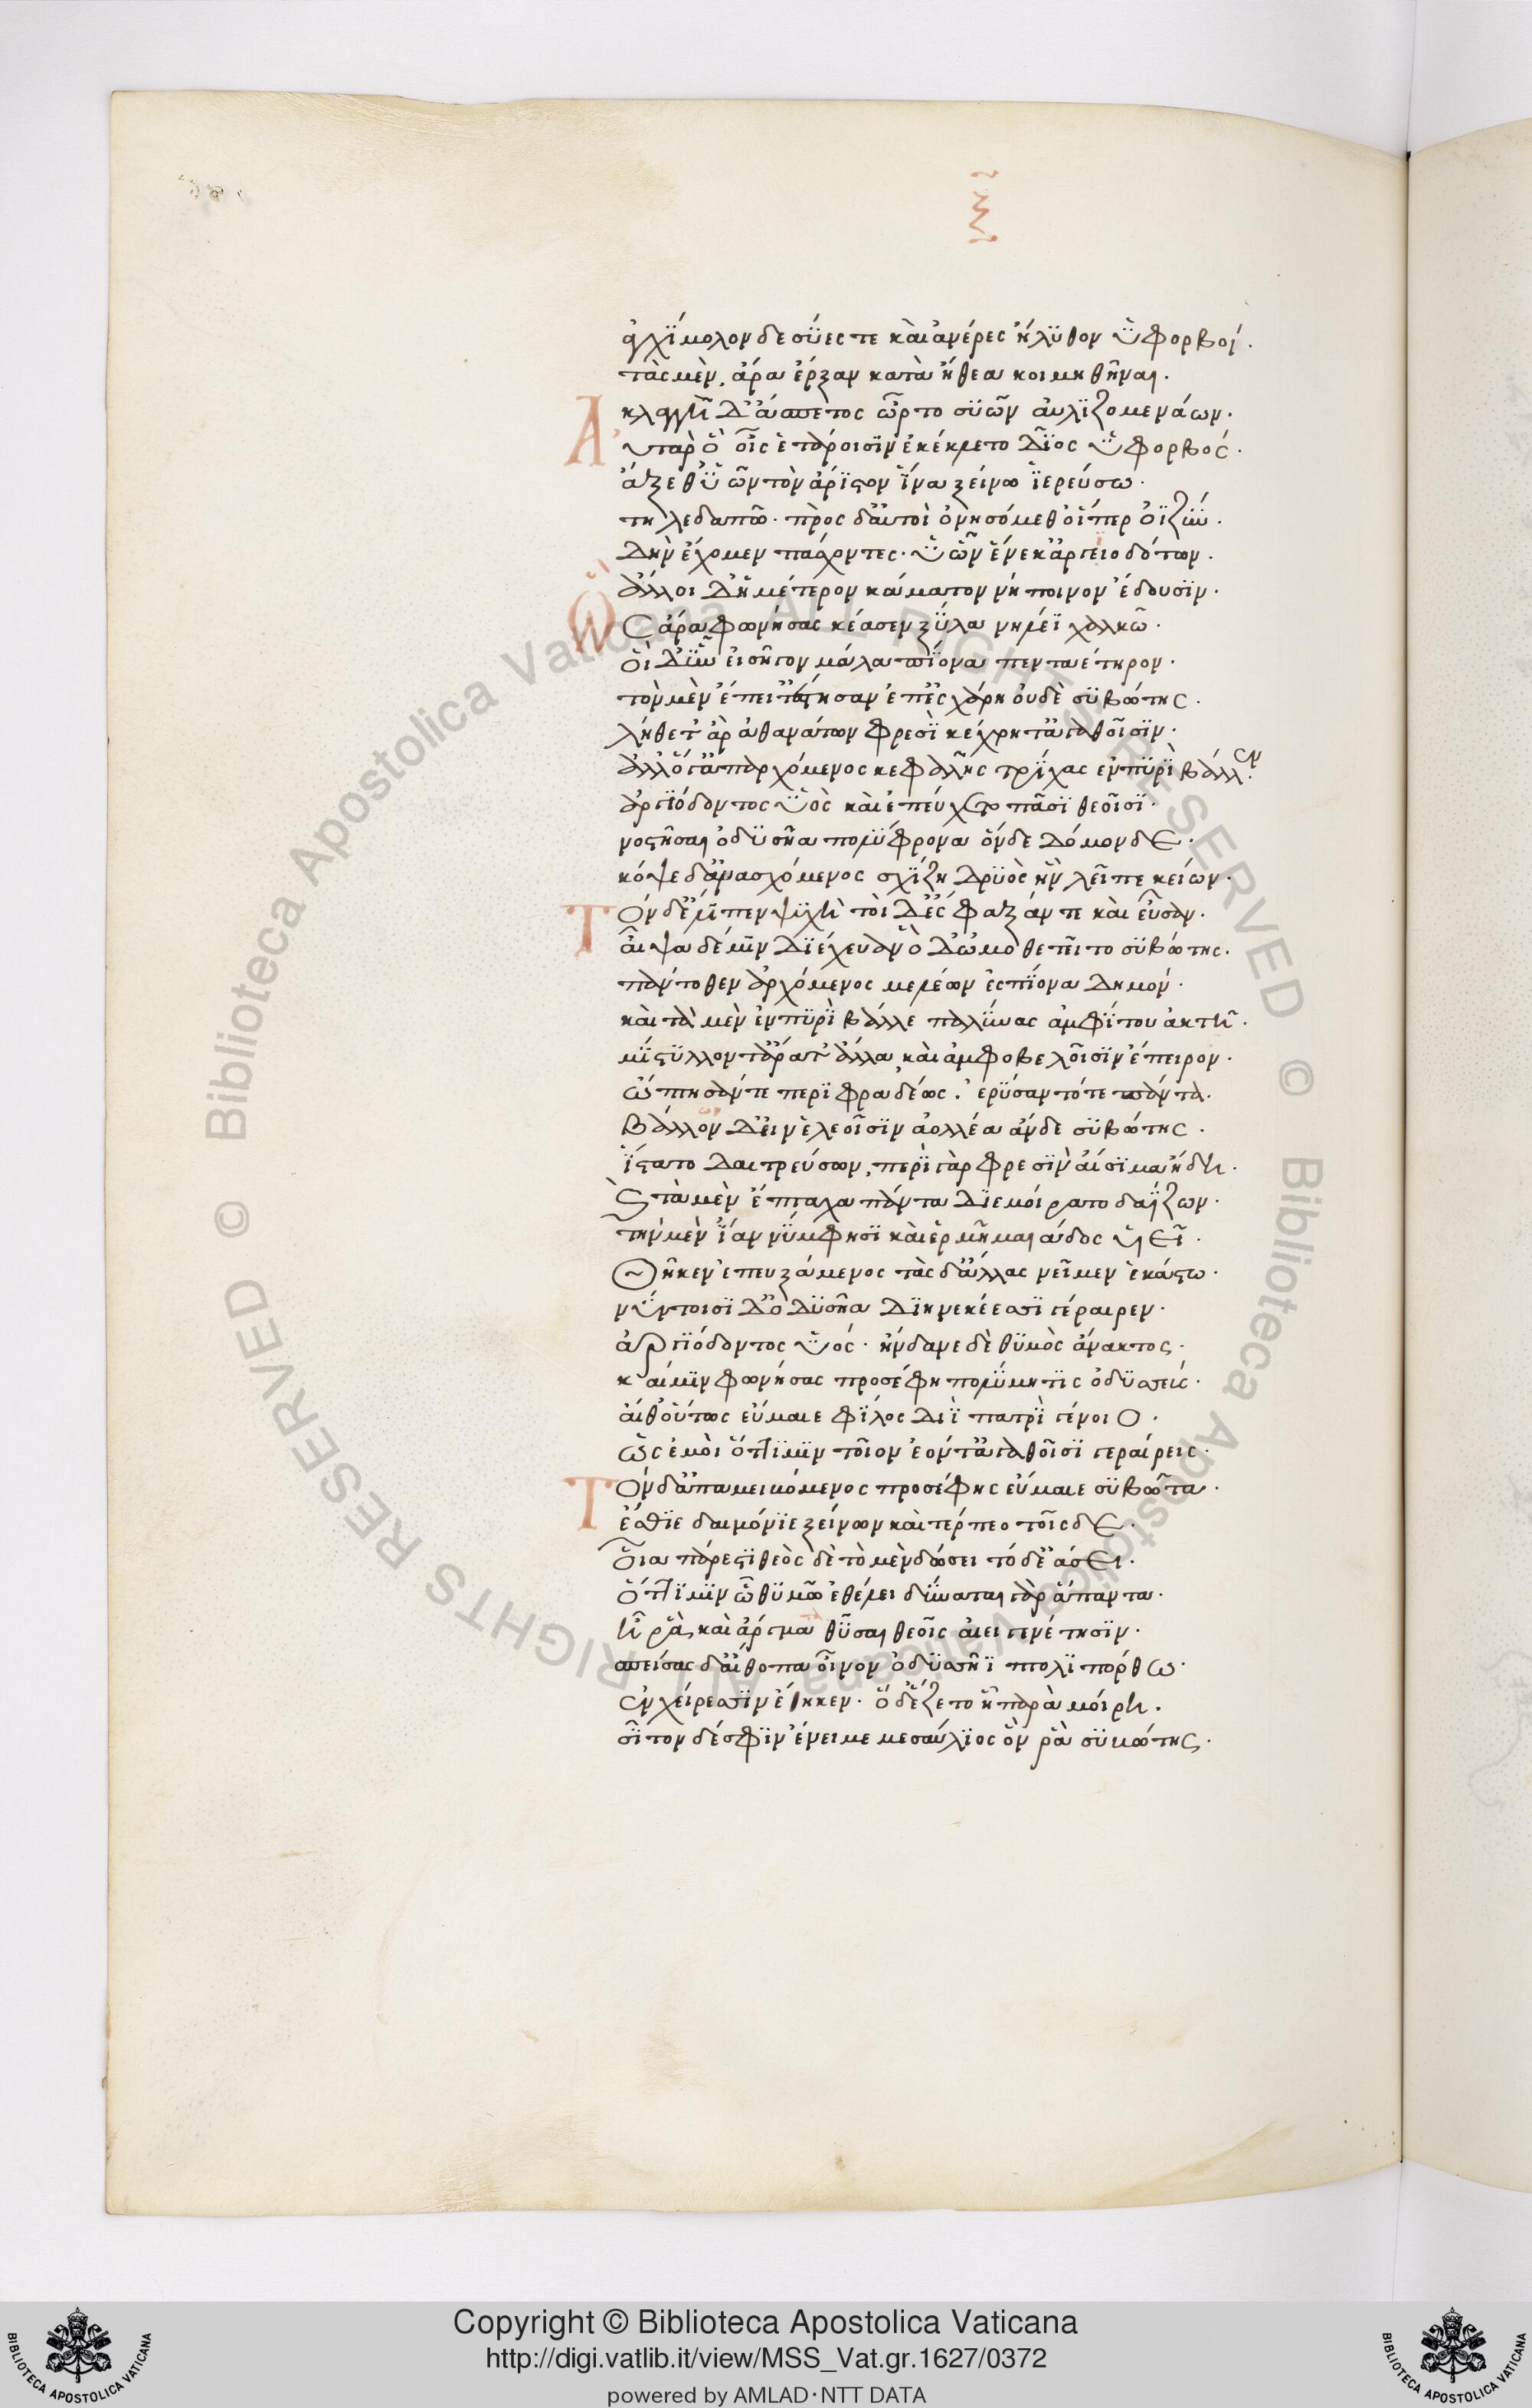 ξ
ἀγχίμολον δὲ σύες τε καὶ ἀνέρες ἤλυθον ὑφορβοί.
τὰς μὲν ἄρα ἔρξαν κατὰ ἤθεα κοιμηθῆναι.
κλαγγὴ δ' ἄσπετος ὦρτο συῶν αὐλιζομενάων.
Αὐτὰρ ὃ οἷς ἑτάροισιν ἐκέκλετο δῖος ὑφορβός.
ἄξεθ' ὑῶν τὸν ἄριστον ἵνα ξείνω ἱερεύσω.
τηλεδαπῶ. πρὸς δ' αὐτοὶ ὀνησόμεθ' οἵπερ ὀϊζὺν.
δὴν ἔχομεν πάσχοντες. ὑῶν ἕνεκ' ἀργειοδόντων.
ἄλλοι δ' ἡμέτερον κάματον νήποινον ἔδουσιν.
Ὣς ἄρα φωνήσας κέασεν ξύλα νηλέϊ χαλκῶ.
οἱ δ' ὗν εἰσῆγον μάλα πίονα πενταέτηρον.
τὸν μὲν ἔπειτ' ἔστησαν ἐπ' ἐσχάρη οὐδὲ συβώτης.
λήθετ' ἄρ' ἀθανάτων φρεσὶ κέχρητ' ἀγαθοῖσιν.
ἀλλ' ὅγ' ἀπαρχόμενος κεφαλῆς τρίχας ἐν πυρὶ βάλλεν.
ἀργιόδοντος ὑὸς καὶ ἐπεύχετο πᾶσι θεοῖσι.
νοστῆσαι ὀδυσῆα πολύφρονα ὅνδε δόμονδε.
κόψε δ' ἀνασχόμενος σχίζη δρυὸς ἣν λεῖπε κείων.
Τὸν δ' ἔλιπεν ψυχὴ τοὶ δ' ἔσφαξάν τε καὶ εὗσαν.
αἶψα δέ μιν διέχευαν ὁ δ' ὠμοθετεῖτο συβώτης.
πάντοθεν ἀρχόμενος μελέων ἐς πίονα δημόν.
καὶ τὰ μὲν ἐν πυρὶ βάλλε παλύνας ἀμφίτου ἀκτῆ.
μίστυλλόν τ' ἄρα τ' ἄλλα καὶ ἀμφ' ὀβελοῖσιν ἔπειρον.
ὤπτησάν τε περιφραδέως. ἐρύσαν τό τε πάντα.
βάλλον δ' εἰν ἐλεοῖσιν ἀολλέα ἂν δὲ συβώτης.
ἵστατο δαιτρεύσων, περὶ γὰρ φρεσὶν αἴσιμα ἤδη.
καὶ τὰ μὲν ἕπταχα πάντα διεμοιρᾶτο δαΐζων.
τὴν μὲν ἴαν νύμφησι καὶ ἑρμῆ μαιάδος υἱεῖ.
θῆκεν ἐπευξάμενος τὰς δ' ἄλλας νεῖμεν ἑκάστω.
νώτοισι δ' ὀδυσῆα διηνεκέεσσι γέραιρεν.
ἀργιόδοντος ὑός. κύδαινε δὲ θυμὸς ἄνακτος.
καί μιν φωνήσας προσέφη πολύμητις ὀδυσσεύς.
αἴθ' οὕτως εὔμαιε φίλος διὶ πατρὶ γένοιο.
ὡς ἐμοὶ ὅττί μιν τοῖον ἐόντ' ἀγαθοῖσι γεραίρεις.
Τὸν δ' ἀπαμειβόμενος προσέφης εὔμαιε συβῶτα.
ἔσθιε δαιμόνιε ξείνων καὶ τέρπεο τοῖσδε.
οἷα πάρεστι θεὸς δὲ τὸ μὲν δώσει τόδ' ἐάσει.
ὅττί μιν ᾧ θυμῶ ἐθέλει δύναται γὰρ ἅπαντα.
ἦ ῥὰ καὶ ἄργματα θῦσαι θεοῖς αἰειγενέτησιν.
σπείσας δ' αἴθοπα οἶνον ὀδυσσῆϊ πτολιπόρθω.
ἐν χείρεσσιν ἔθηκεν. ὃ δ' ἕζετο ἧ παρὰ μοίρη.
σῖτον δέ σφιν ἔνειμε μεσαύλιος ὅν ῥὰ συβώτης.
Copyright © Biblioteca Apostolica Vaticana
http://digi.vatlib.it/view/MSS_Vat.gr.1627/0372
powered by AMLAD·NTT DATA